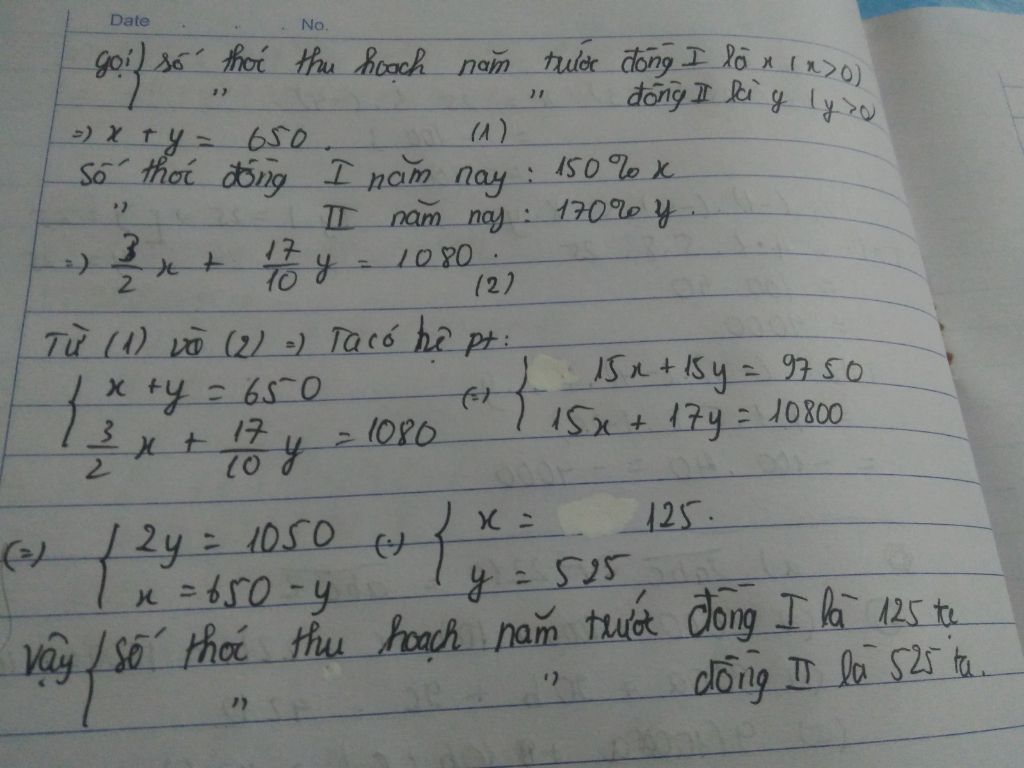 Date . . . No.
gọi { số thóc thu hoạch năm trước đồng I là x (x>0)
" " đồng II là y (y>0)
=> x + y = 650. (1)
Số thóc đồng I năm nay : 150% x
" II năm nay : 170% y.
=> 3/2 x + 17/10 y = 1080. (2)
Từ (1) và (2) => Ta có hệ pt:
{ x + y = 650 (=) { 15x + 15y = 9750
3/2 x + 17/10 y = 1080 15x + 17y = 10800
(=) { 2y = 1050 (=) { x = 125.
x = 650 - y y = 525
Vậy { số thóc thu hoạch năm trước đồng I là 125 tạ
" " đồng II là 525 tạ.